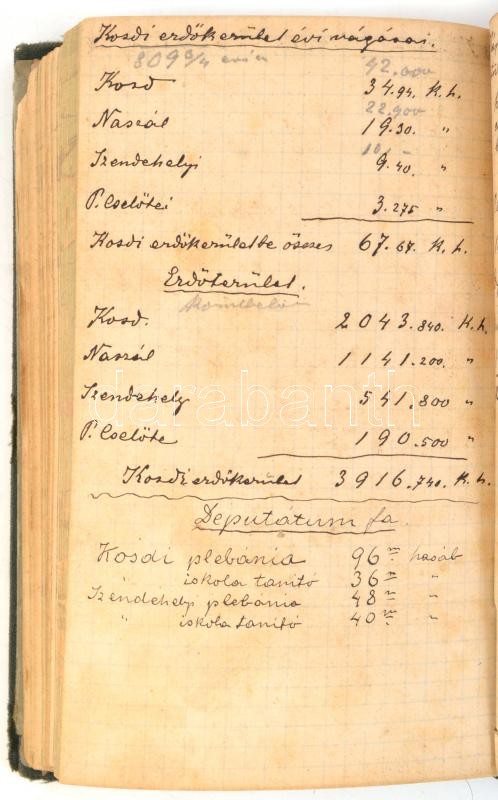 Kosdi erdőkerület évi vágásai.
809 3/4 42.000
Kosd 34.94. K.h.
22.900
Naszál 19.30. "
10.-
Szendehelyi 9.40. "
P. Cselőtei 3.275 "
Kosdi erdőkerületbe összes 67.67. K.h.
Erdőterület.
Kosd. 2043.840. K.h.
Naszál 1141.200. "
Szendehely 541.800 "
P. Cselőte 190.500 "
Kosdi erdőkerület 3916.740. K.h.
Deputátum fa.
Kosdi plebánia 96 m hasáb
iskola tanító 36 m "
Szendehelyi plebánia 48 m "
" iskola tanító 40 m "
darabanth